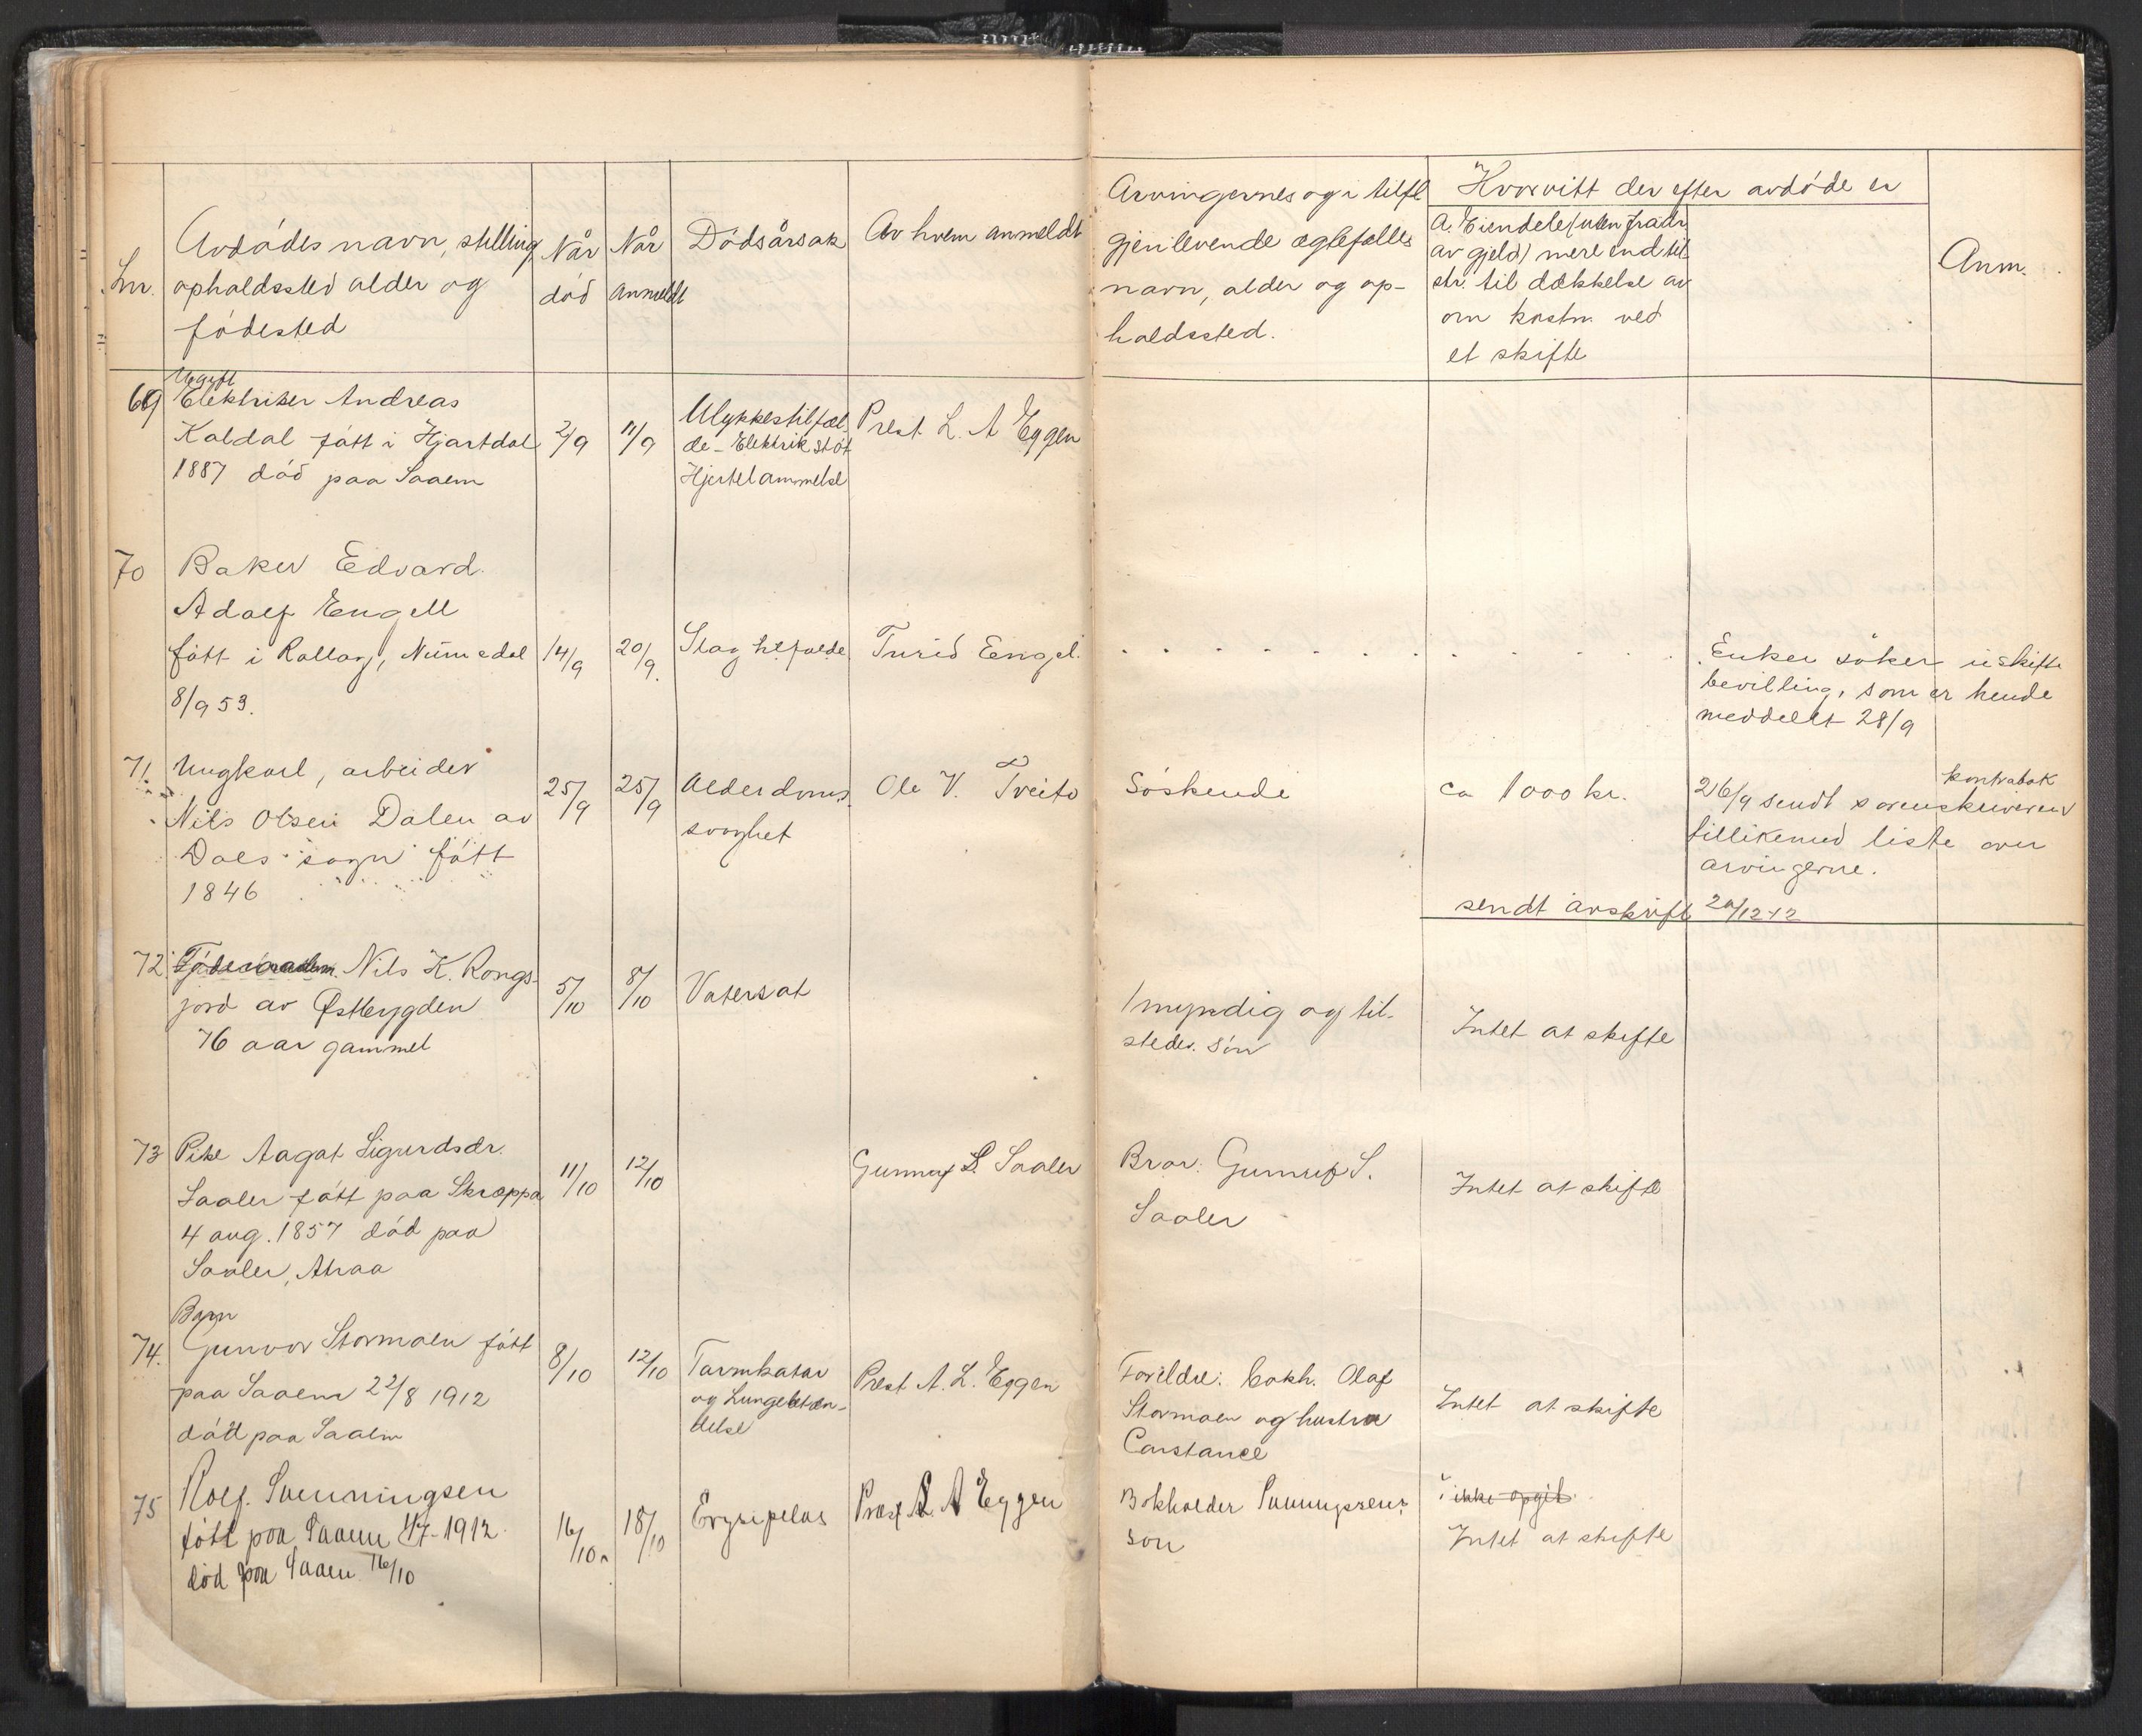 Lnr.
Avdødes navn, stilling
opholdssted alder og
fødested
Når
død
Når
anmeldt
Dødsårsak
Av hvem anmeldt
Arvingernes og i tilfl
gjenlevende ægtefælles
navn, alder og op-
holdssted.
Hvorvitt der efter avdøde er
A. Eiendele (uten fradr.
av gjeld) mere end til-
str. til dækkelse av
om kostn. ved
et skifte
Anm.
69
Ugift
Elektriker Andreas
Kaldal født i Hjartdal
1887 død paa Saaem
2/9
11/9
Ulykkestilfæl-
de - Elektrik støt
Hjertelammelse
Prest L. A Eggen
70
Baker Edvard
Adolf Engell
født i Rollag, Numedal
8/9 53.
14/9
20/9
Slagtilfælde
Turid Engel.
Enken søker uskifte
bevilling, som er hende
meddelt 28/9
71.
Ungkarl, arbeider
Nils Olsen Dalen av
Dals sogn født
1846
25/9
25/9
Alderdoms
svaghet
Ole V. Tveito
Søskende
ca 1000 kr.
kontrabok
26/9 sendt sorenskriveren
tillikemed liste over
arvingerne.
sendt avskrift 20/12 12
72
Nils K. Rongs-
jord av Østbygden
76 aar gammel
5/10
8/10
Vatersot
1 myndig og til-
stedev. søn
Intet at skifte
73
Pike Aagot Sigurdsdr.
Saaler født paa Skroppa
4 aug. 1857 død paa
Saaler, Atraa
11/10
12/10
Gunnuf S. Saaler
Bror: Gunnuf S.
Saaler
Intet at skifte
74.
Barn
Gunvor Stormoen født
paa Saaem 22/8 1912
død paa Saaem
8/10
12/10
Tarmkatar
og Lungebetæn-
delse
Prest A. L. Eggen
Forældre: bokh. Olaf
Stormoen og hustru
Constance
Intet at skifte
75
Rolf. Svenningsen
født paa Saaem 4/7-1912
død paa Saaem 16/10
16/10
18/10
Erysipelas
Prest L A Eggen
Bokholder Svenningsens
søn
ikke opgit
Intet at skifte